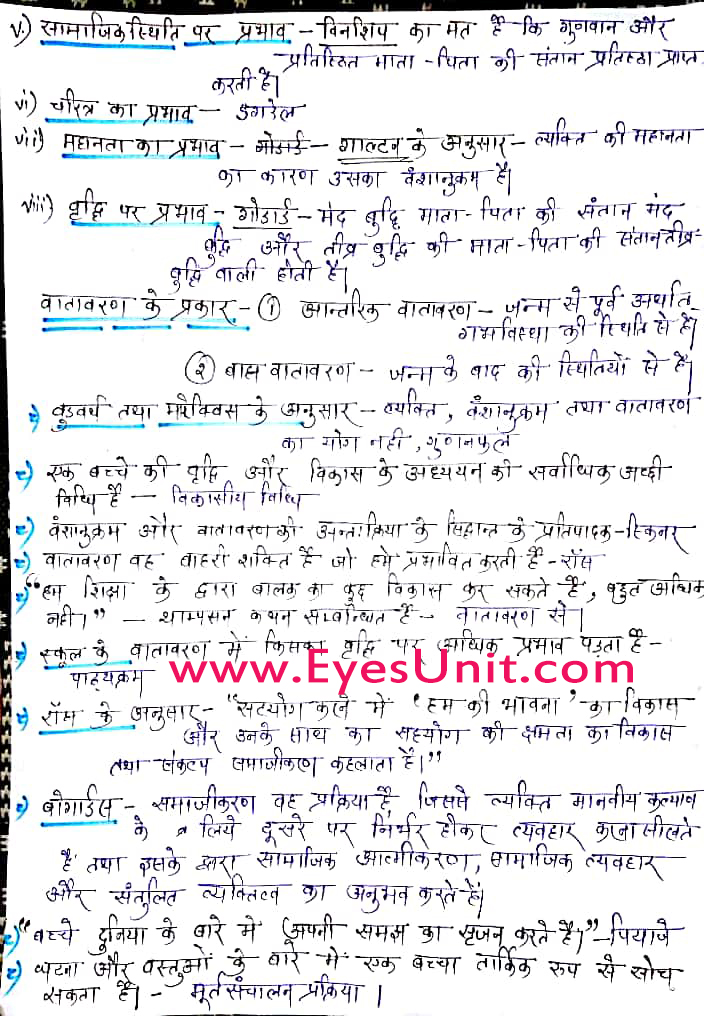 v.) सामाजिक स्थिति पर प्रभाव - विनशिप का मत है कि गुणवान और
प्रतिष्ठित माता-पिता की संतान प्रतिष्ठा प्राप्त
करती है।
vi) चरित्र का प्रभाव - डगडेल
vii) महानता का प्रभाव - गोडार्ड - गाल्टन के अनुसार - व्यक्ति की महानता
का कारण उसका वंशानुक्रम है।
viii) वृद्धि पर प्रभाव - गोडार्ड - मंद बुद्धि माता-पिता की संतान मंद
बुद्धि और तीव्र बुद्धि की माता-पिता की संतान तीव्र
बुद्धि वाली होती है।
वातावरण के प्रकार - ① आन्तरिक वातावरण - जन्म से पूर्व अर्थात
गर्भावस्था की स्थिति से है।
② बाह्य वातावरण - जन्म के बाद की स्थितियों से है।
वुडवर्थ तथा मारेक्विस के अनुसार - व्यक्ति, वंशानुक्रम तथा वातावरण
का योग नही, गुणनफल
एक बच्चे की वृद्धि और विकास के अध्ययन की सर्वाधिक अच्छी
विधि है - विकासीय विधि
वंशानुक्रम और वातावरण की अन्तःक्रिया के सिद्धान्त के प्रतिपादक - स्किनर
वातावरण वह बाहरी शक्ति है जो हमे प्रभावित करती है - रॉस
"हम शिक्षा के द्वारा बालक का कुछ विकास कर सकते है, बहुत अधिक
नही।" - थाम्पसन कथन सम्बन्धित है - वातावरण से।
स्कूल के वातावरण में किसका वृद्धि पर अधिक प्रभाव पड़ता है -
पाठ्यक्रम
www.EyesUnit.com
रॉस के अनुसार - "सहयोग करने में 'हम की भावना' का विकास
और उनके साथ का सहयोग की क्षमता का विकास
तथा संकल्प समाजीकरण कहलाता है।"
बोगार्डस - समाजीकरण वह प्रक्रिया है जिससे व्यक्ति मानवीय कल्याण
के लिये दूसरे पर निर्भर होकर व्यवहार करना सीखते
है तथा इसके द्वारा सामाजिक आत्मीकरण, सामाजिक व्यवहार
और संतुलित व्यक्तित्व का अनुभव करते हैं।
"बच्चे दुनिया के बारे में अपनी समझ का सृजन करते है।" - पियाजे
घटना और वस्तुओं के बारे में एक बच्चा तार्किक रूप से सोच
सकता है। - मूर्त संचालन प्रक्रिया।